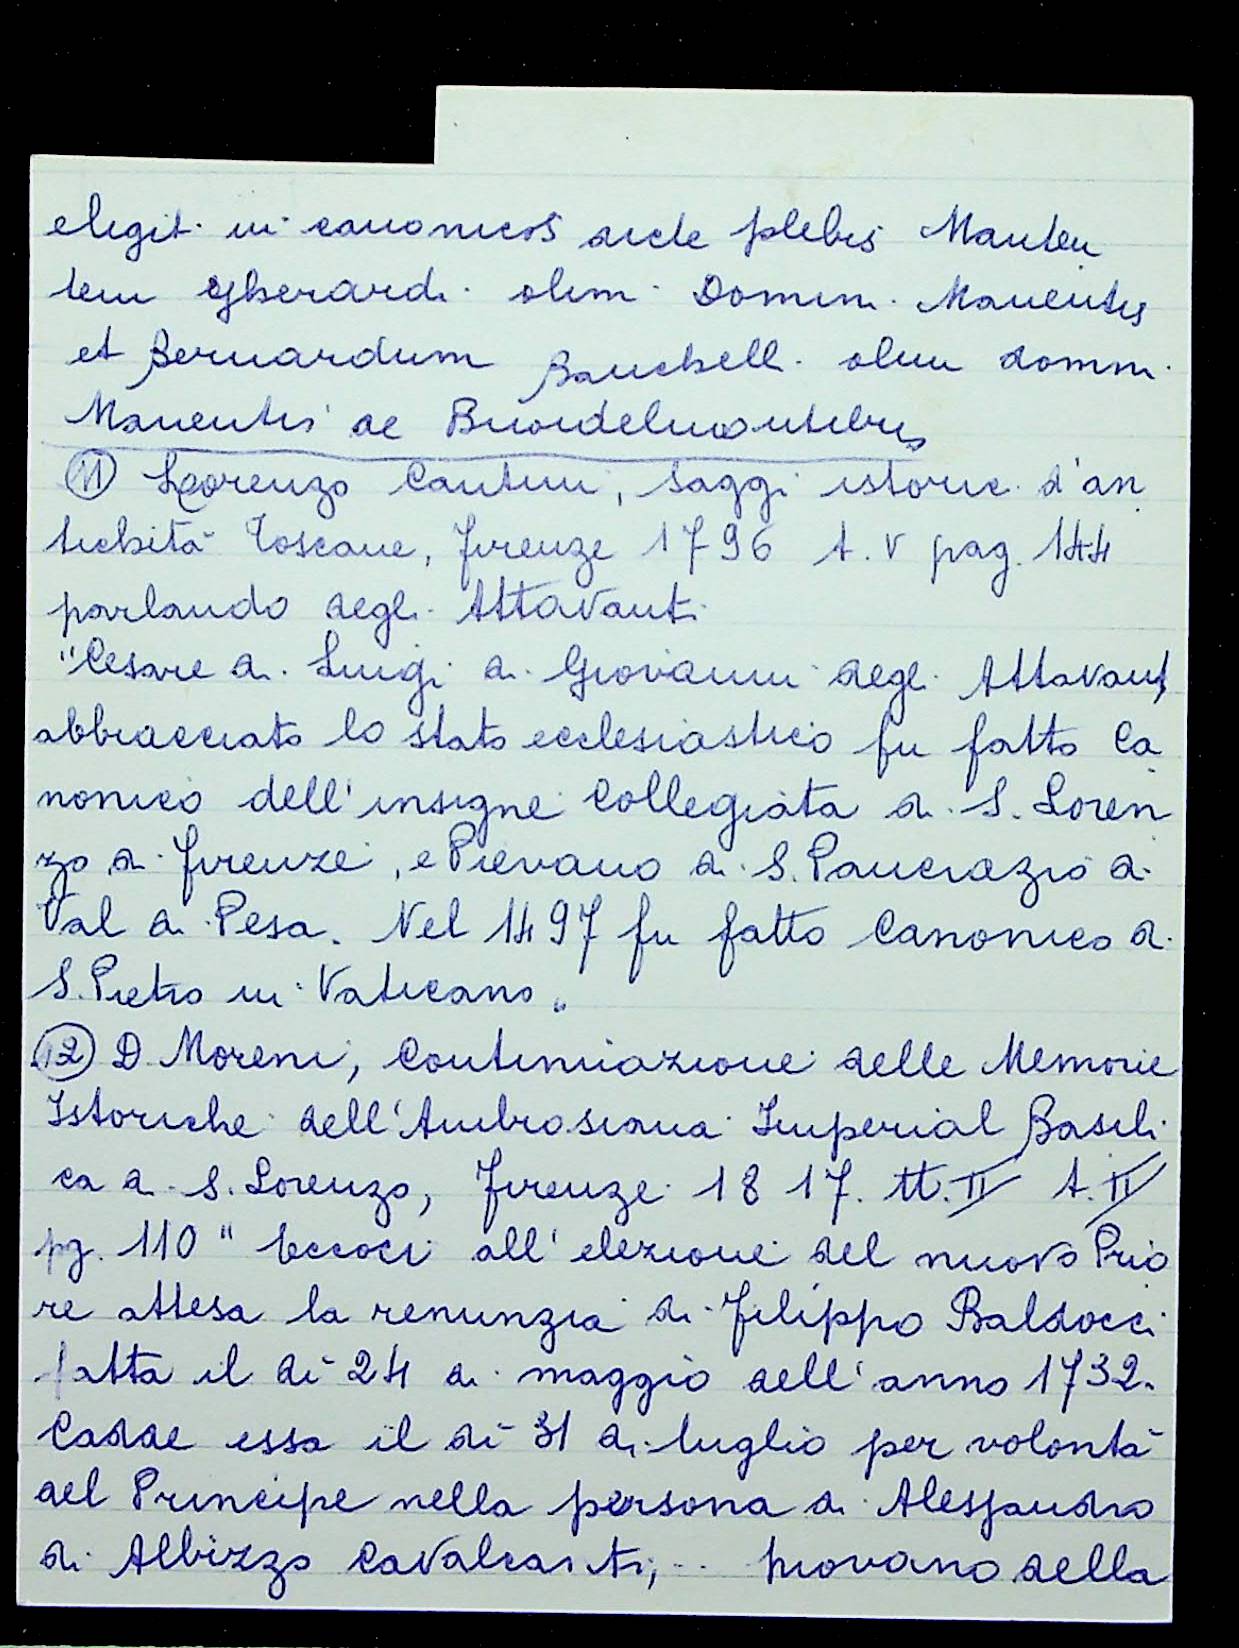 elegit in canonicos dicte plebis Manten
tem Gherardi olim Domin. Manentis
et Bernardum Banchell. olim domin.
Manentis de Buondelmontibus
11 Lorenzo Cantini, Saggi istoric. d'an
tichità Toscane, Firenze 1796 t. V pag. 144
parlando degli Attavanti
"Cesare di Luigi di Giovanni degli Attavanti
abbracciato lo stato ecclesiastico fu fatto Ca
nonico dell'insigne Collegiata di S. Loren
zo di Firenze, e Pievano di S. Pancrazio di
Val di Pesa. Nel 1497 fu fatto Canonico di
S. Pietro in Vaticano"
12 D Moreni, Continuazione delle Memorie
Istoriche dell'Ambrosiana Imperial Basili
ca di S. Lorenzo, Firenze 1817. tt. II t. II
pg. 110 " Eccoci all'elezione del nuovo Prio
re attesa la renunzia di Filippo Baldocci
fatta il dì 24 di maggio dell'anno 1732.
Cadde essa il dì 31 di luglio per volontà
del Principe nella persona di Alessandro
di Albizzo Cavalcanti, .. piovano della